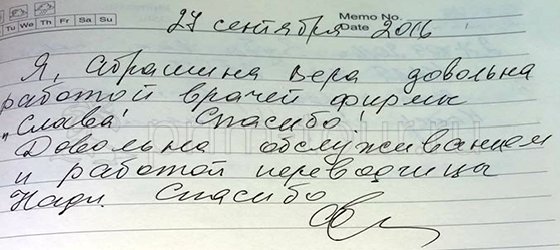 Memo No.
Tu We Th Fr Sa Su
Date
27 сентября 2016
Я, Абрашина Вера довольна
работой врачей фирмы
„Слава“ Спасибо!
Довольна обслуживанием
и работой переводчицы
Нади. Спасибо